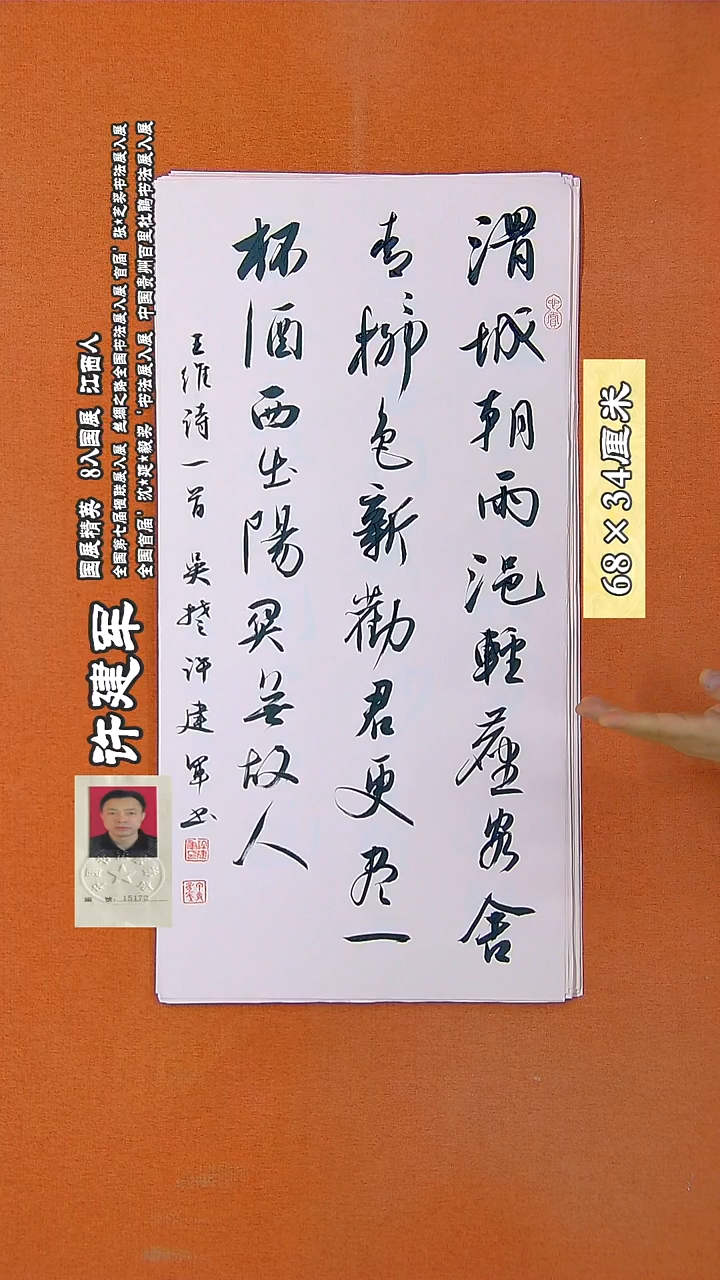 渭城朝雨浥輕塵客舍
青柳色新勸君更尽一
杯酒西出陽関無故人
王維詩一首 吳楚 許建軍书
68×34厘米
国展精英 8入国展 江西人
全国第七届楹联展入展 丝绸之路全国书法展入展 首届'张*芝奖书法展入展
全国首届'沈*延*毅奖'书法展入展 中国贵州百里杜鹃书法展入展
许建军
编 號: 15172